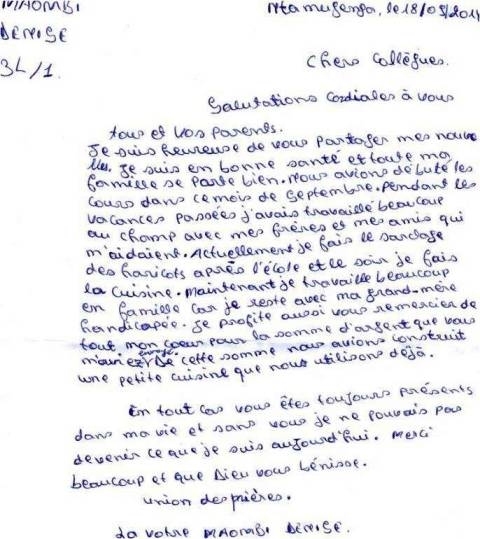 MAOMBI
DENISE
3L/1.
Ntamugenga, le 18/09/2014
Chers Collègues.
Salutations Cordiales à vous
tous et vos parents.
Je suis heureuse de vous partager mes nouve
lles. Je suis en bonne santé et toute ma
famille se porte bien. Nous avions débuté les
cours dans ce mois de septembre. Pendant les
vacances passées j'avais travaillé beaucoup
au champ avec mes frères et mes amis qui
m'aidaient. Actuellement je fais le sarclage
des haricots après l'école et le soir je fais
la cuisine. Maintenant je travaille beaucoup
en famille car je reste avec ma grand-mère
handicapée. Je profite aussi vous remercier de
tout mon coeur pour la somme d'argent que vous
m'aviez envoyé. De cette somme nous avions construit
une petite cuisine que nous utilisons déjà.
En tout cas vous êtes toujours présents
dans ma vie et sans vous je ne pouvais pas
devenir ce que je suis aujourd'hui. Merci
beaucoup et que Dieu vous bénisse.
union des prières.
La votre MAOMBI DENISE.